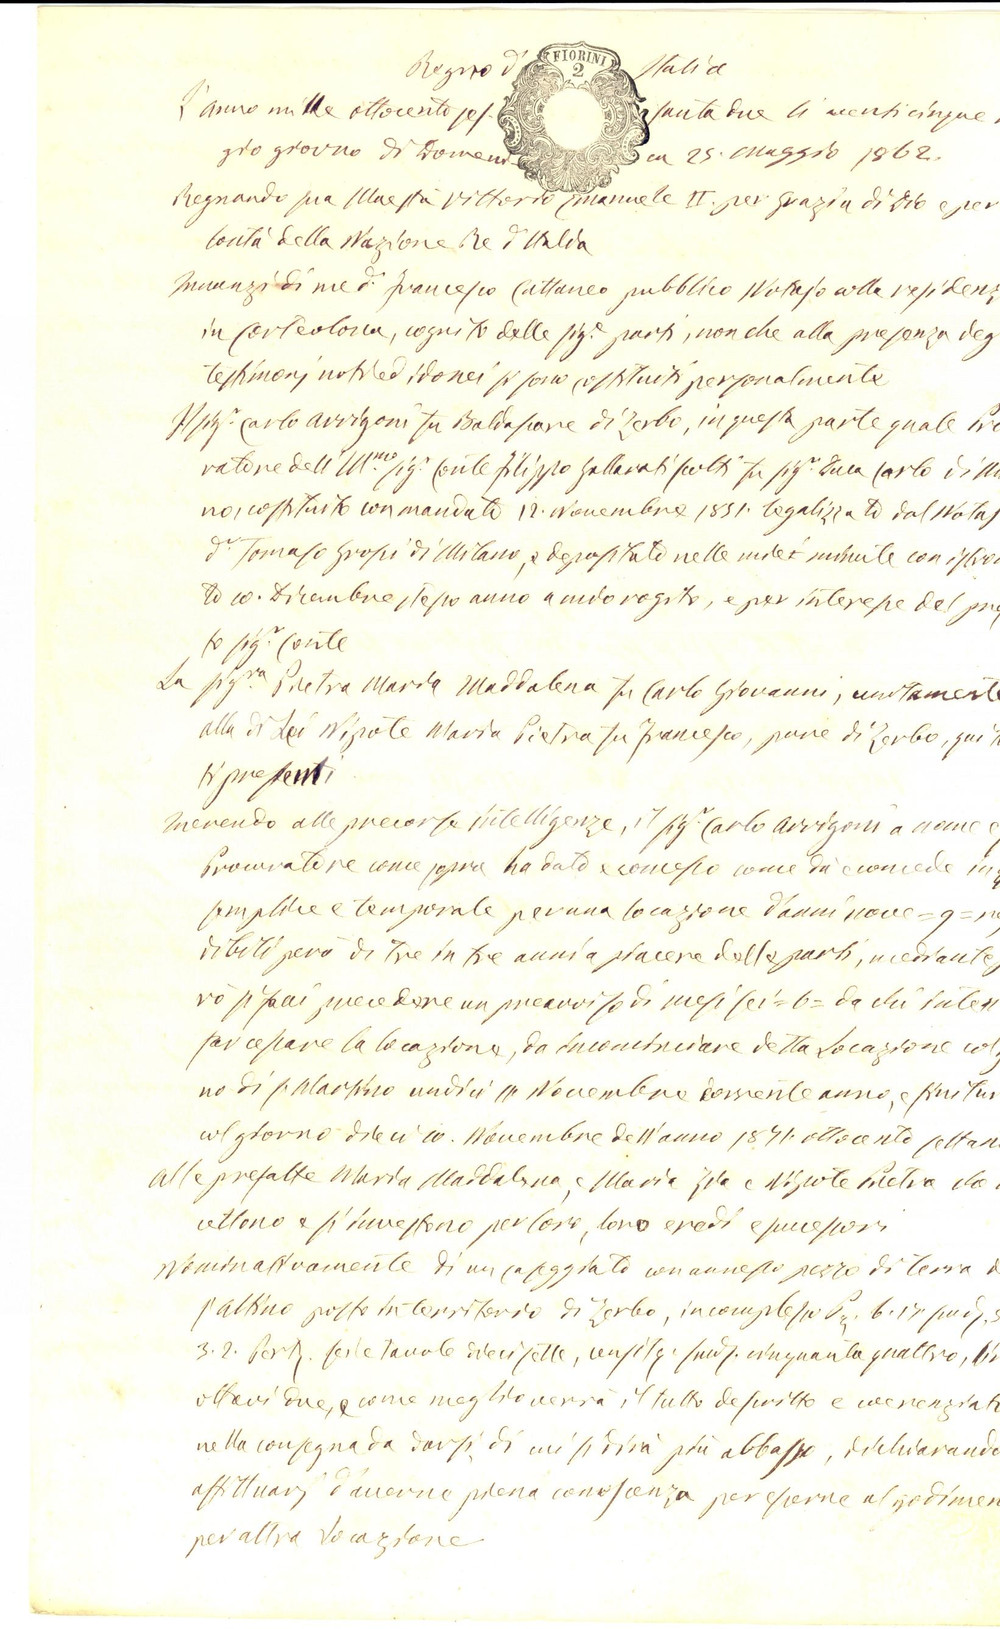 Regno d' Italia
FIORINI
2
L'anno mille ottocento ses- santa due li venticinque
gio giorno di Domeni ca 25. Maggio 1862.
Regnando sua Maestà Vittorio Emanuele II. per Grazia di Dio e per
lontà della Nazione Re d'Italia
Innanzi di me Dr. Francesco Cattaneo pubblico Notajo colla residenz
in Corteolona, cognito delle sigre. parti, non che alla presenza deg
testimonj noti ed idonei si sono costituiti personalmente
Il sigr. Carlo Arrigoni fu Baldassare di Zerbo, in questa parte quale Pro
ratore dell'Illmo. sigr. Conte Filippo Gallarati Scotti fu sigr. Duca Carlo di Mi
no, costituito con mandato 12. Novembre 1851. legalizzato dal Notaj
Dr. Tomaso Grossi di Milano, e depositato nelle minute con
to 10. Dicembre stesso anno a mio rogito, e per interesse del
to sigr. Conte
La sigra. Pietra Maria Maddalena fu Carlo Giovanni, unitamente
alla di Lei Nipote Maria Pietra fu Francesco, pure di Zerbo, qui
ti presenti
Inerendo alle precorse intelligenze, il sigr. Carlo Arrigoni a nome e
Procuratore come sopra ha dato e concesso come dà e concede in
semplice e temporale per una locazione d'anni nove = 9 =
dibili però di tre in tre anni a piacere delle parti, mediante
rò si fai precedere un preavviso di mesi sei = 6 = da chi inten
far cessare la locazione, da incominciare detta Locazione col
no di S. Martino undici 11 Novembre corrente anno, e finitur
col giorno dieci 10. Novembre dell'anno 1871. ottocento settan
Alle prefatte Maria Maddalena, e Maria Zia e Nipote Pietra che
cettono e si investono per loro, loro eredi e successori
Nominativamente di un caseggiato con annesso pezzo di terra
s'Altino posto in territorio di Zerbo, in complesso Pz. 6. 17 scud.
3. 2. Pertz. sei e tavole diecisette, scud. cinquanta quattro,
ottavi due, e come meglio verrà il tutto descritto e
nella consegna da darsi di cui si dirà più abbasso, dichiarando
affittuarj d'averne piena conoscenza per esserne al godimen
per altra Locazione